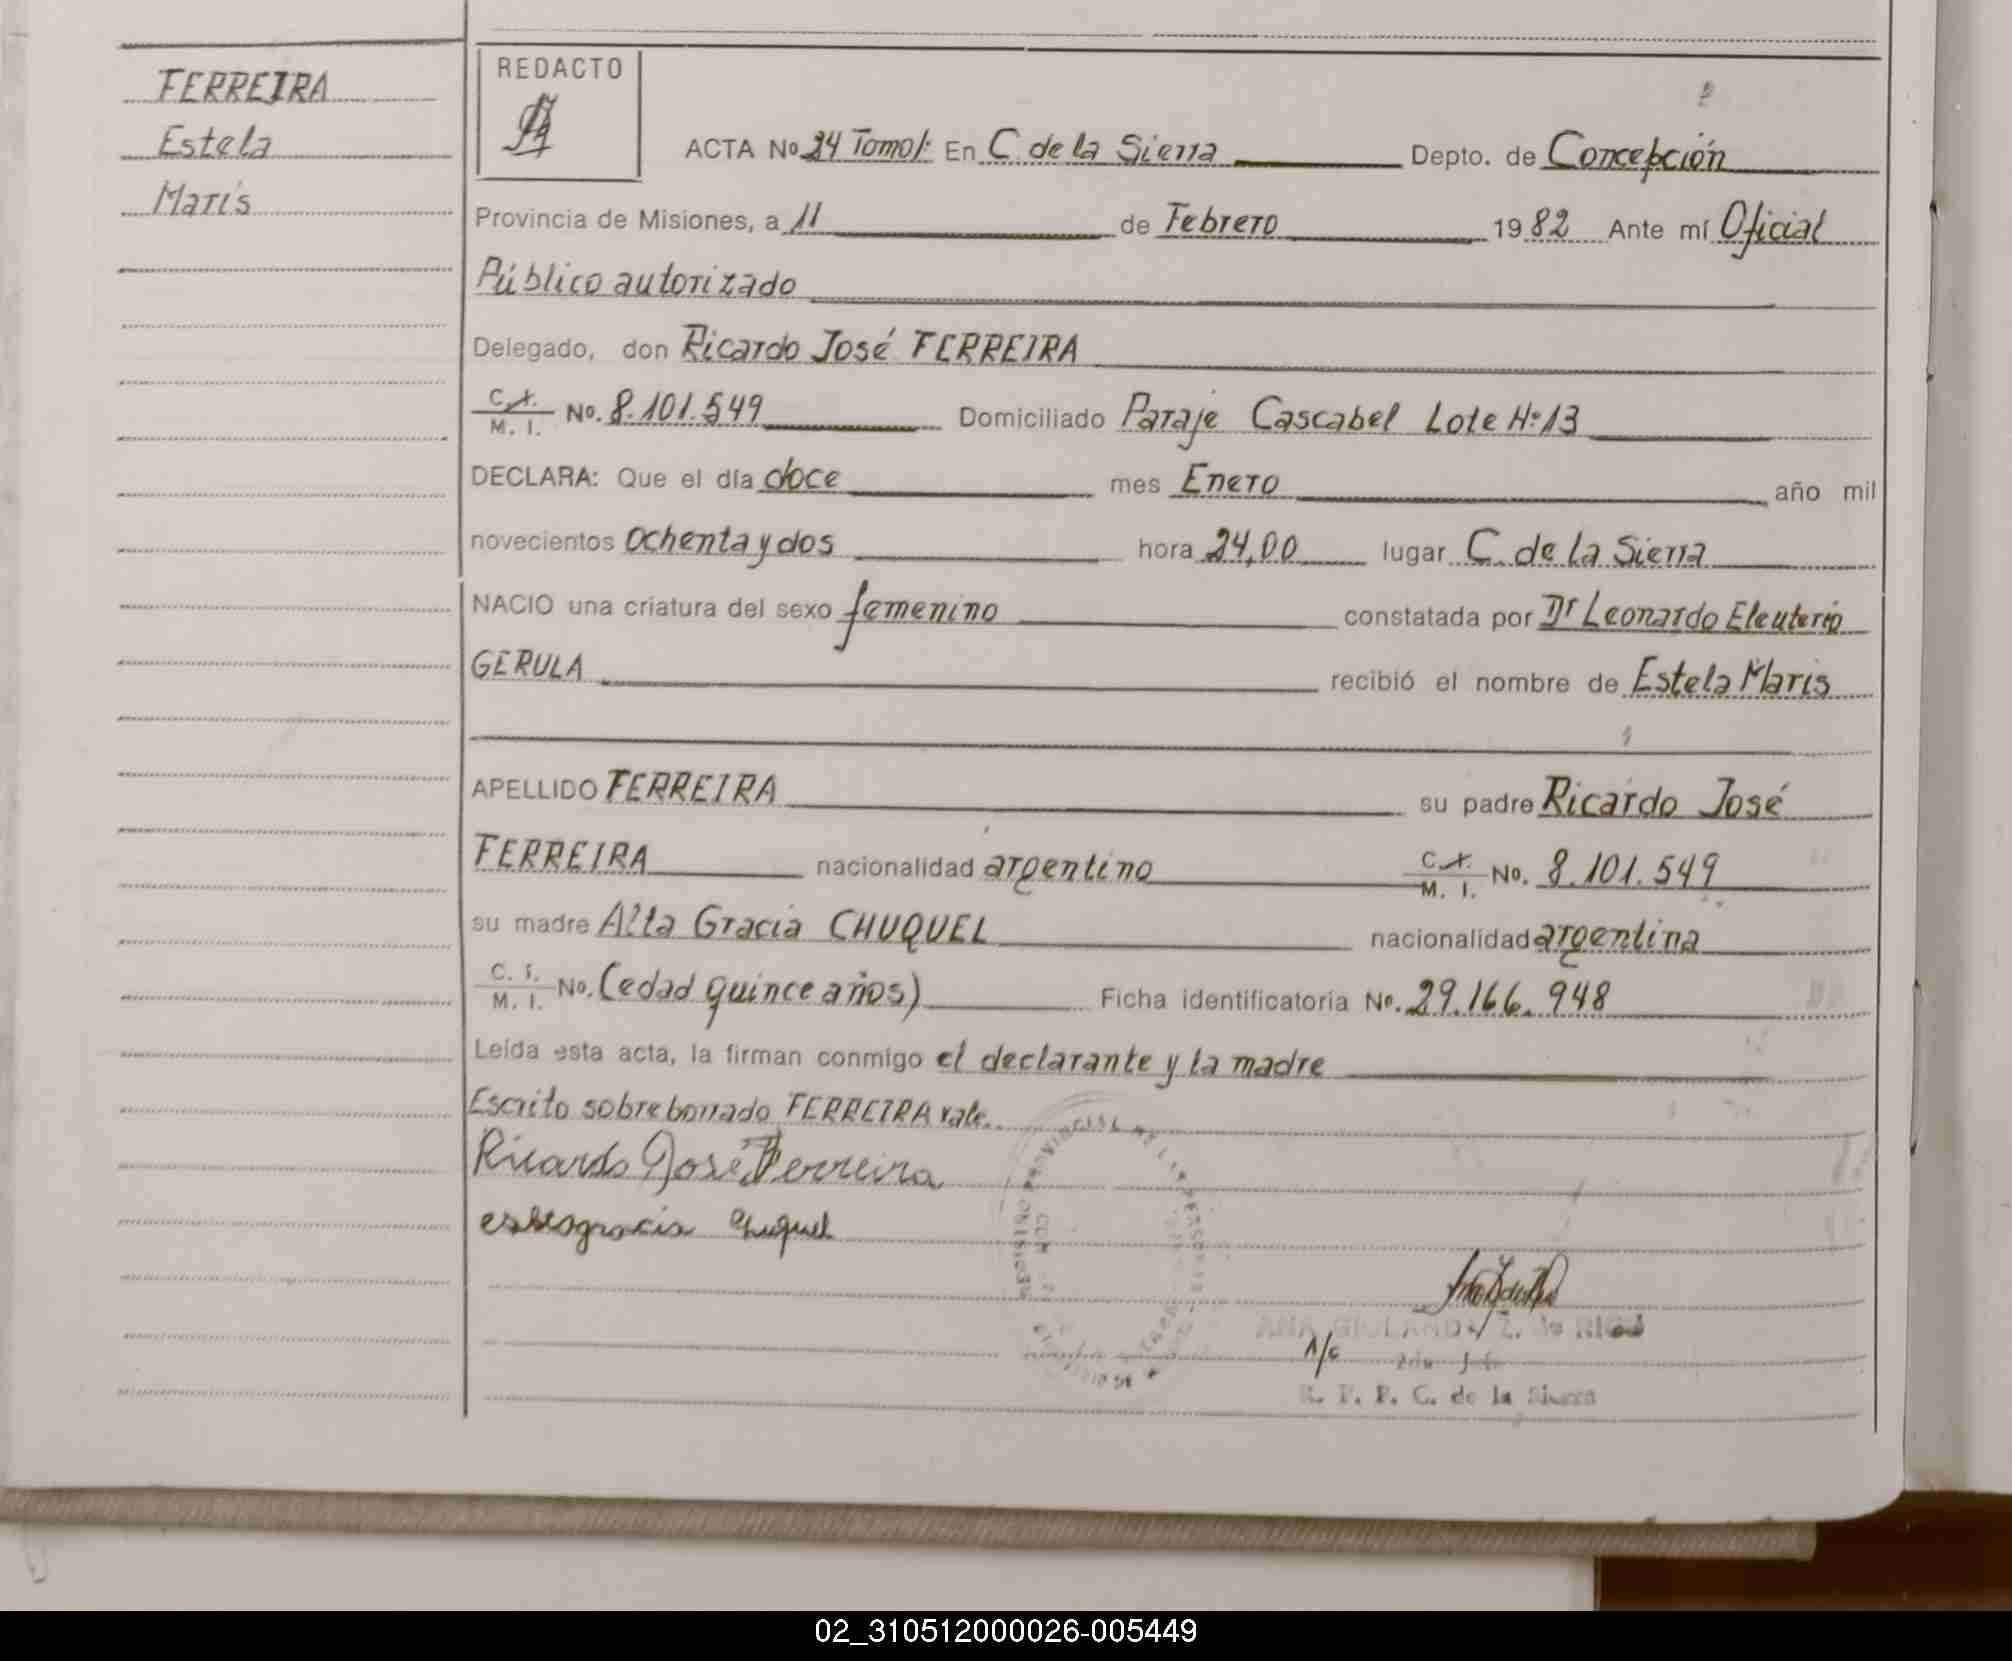 FERREIRA
Estela
Maris
REDACTO
ACTA No 24 Tomo I: En C. de la Sierra Depto. de Concepción
Provincia de Misiones, a 11 de Febrero 1982 Ante mí Oficial
Público autorizado
Delegado, don Ricardo José FERREIRA
C. I. / M. I. No. 8.101.549 Domiciliado Paraje Cascabel Lote Nº 13
DECLARA: Que el día doce mes Enero año mil
novecientos ochenta y dos hora 24,00 lugar C. de la Sierra
NACIO una criatura del sexo femenino constatada por Dr Leonardo Eleuterio
GERULA recibió el nombre de Estela Maris
APELLIDO FERREIRA su padre Ricardo José
FERREIRA nacionalidad argentino C. I. / M. I. No. 8.101.549
su madre Alta Gracia CHUQUEL nacionalidad argentina
C. I. / M. I. No. (edad quince años) Ficha identificatoria No. 29.166.948
Leída esta acta, la firman conmigo el declarante y la madre
Escrito sobre borrado FERREIRA vale.
Ricardo José Ferreira
chuquel
A/c
R. P. P. C. de la Sierra
02_310512000026-005449